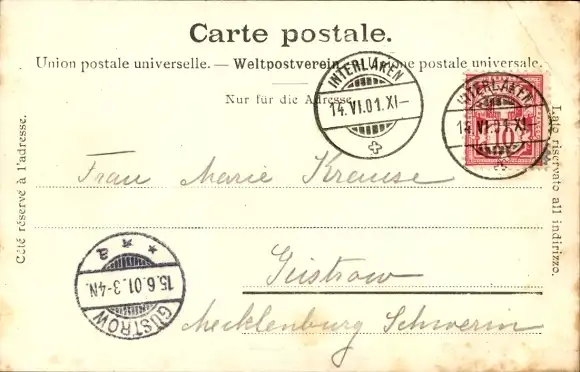 Carte postale.
Union postale universelle. — Weltpostverein — Unione postale universale.
Nur für die Adresse.
INTERLAKEN
14.VI.01.XI—
INTERLAKEN
14.VI.01.XI—
10
Côté réservé à l'adresse.
Lato riservato all indirizzo.
Frau Marie Krause
Güstrow
Mecklenburg Schwerin
GÜSTROW
15.6.01.3-4N.
* * a